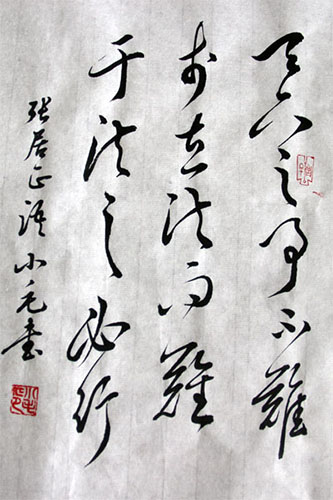 天下之事不難
於立法而難
于法之必行
張居正語小毛書